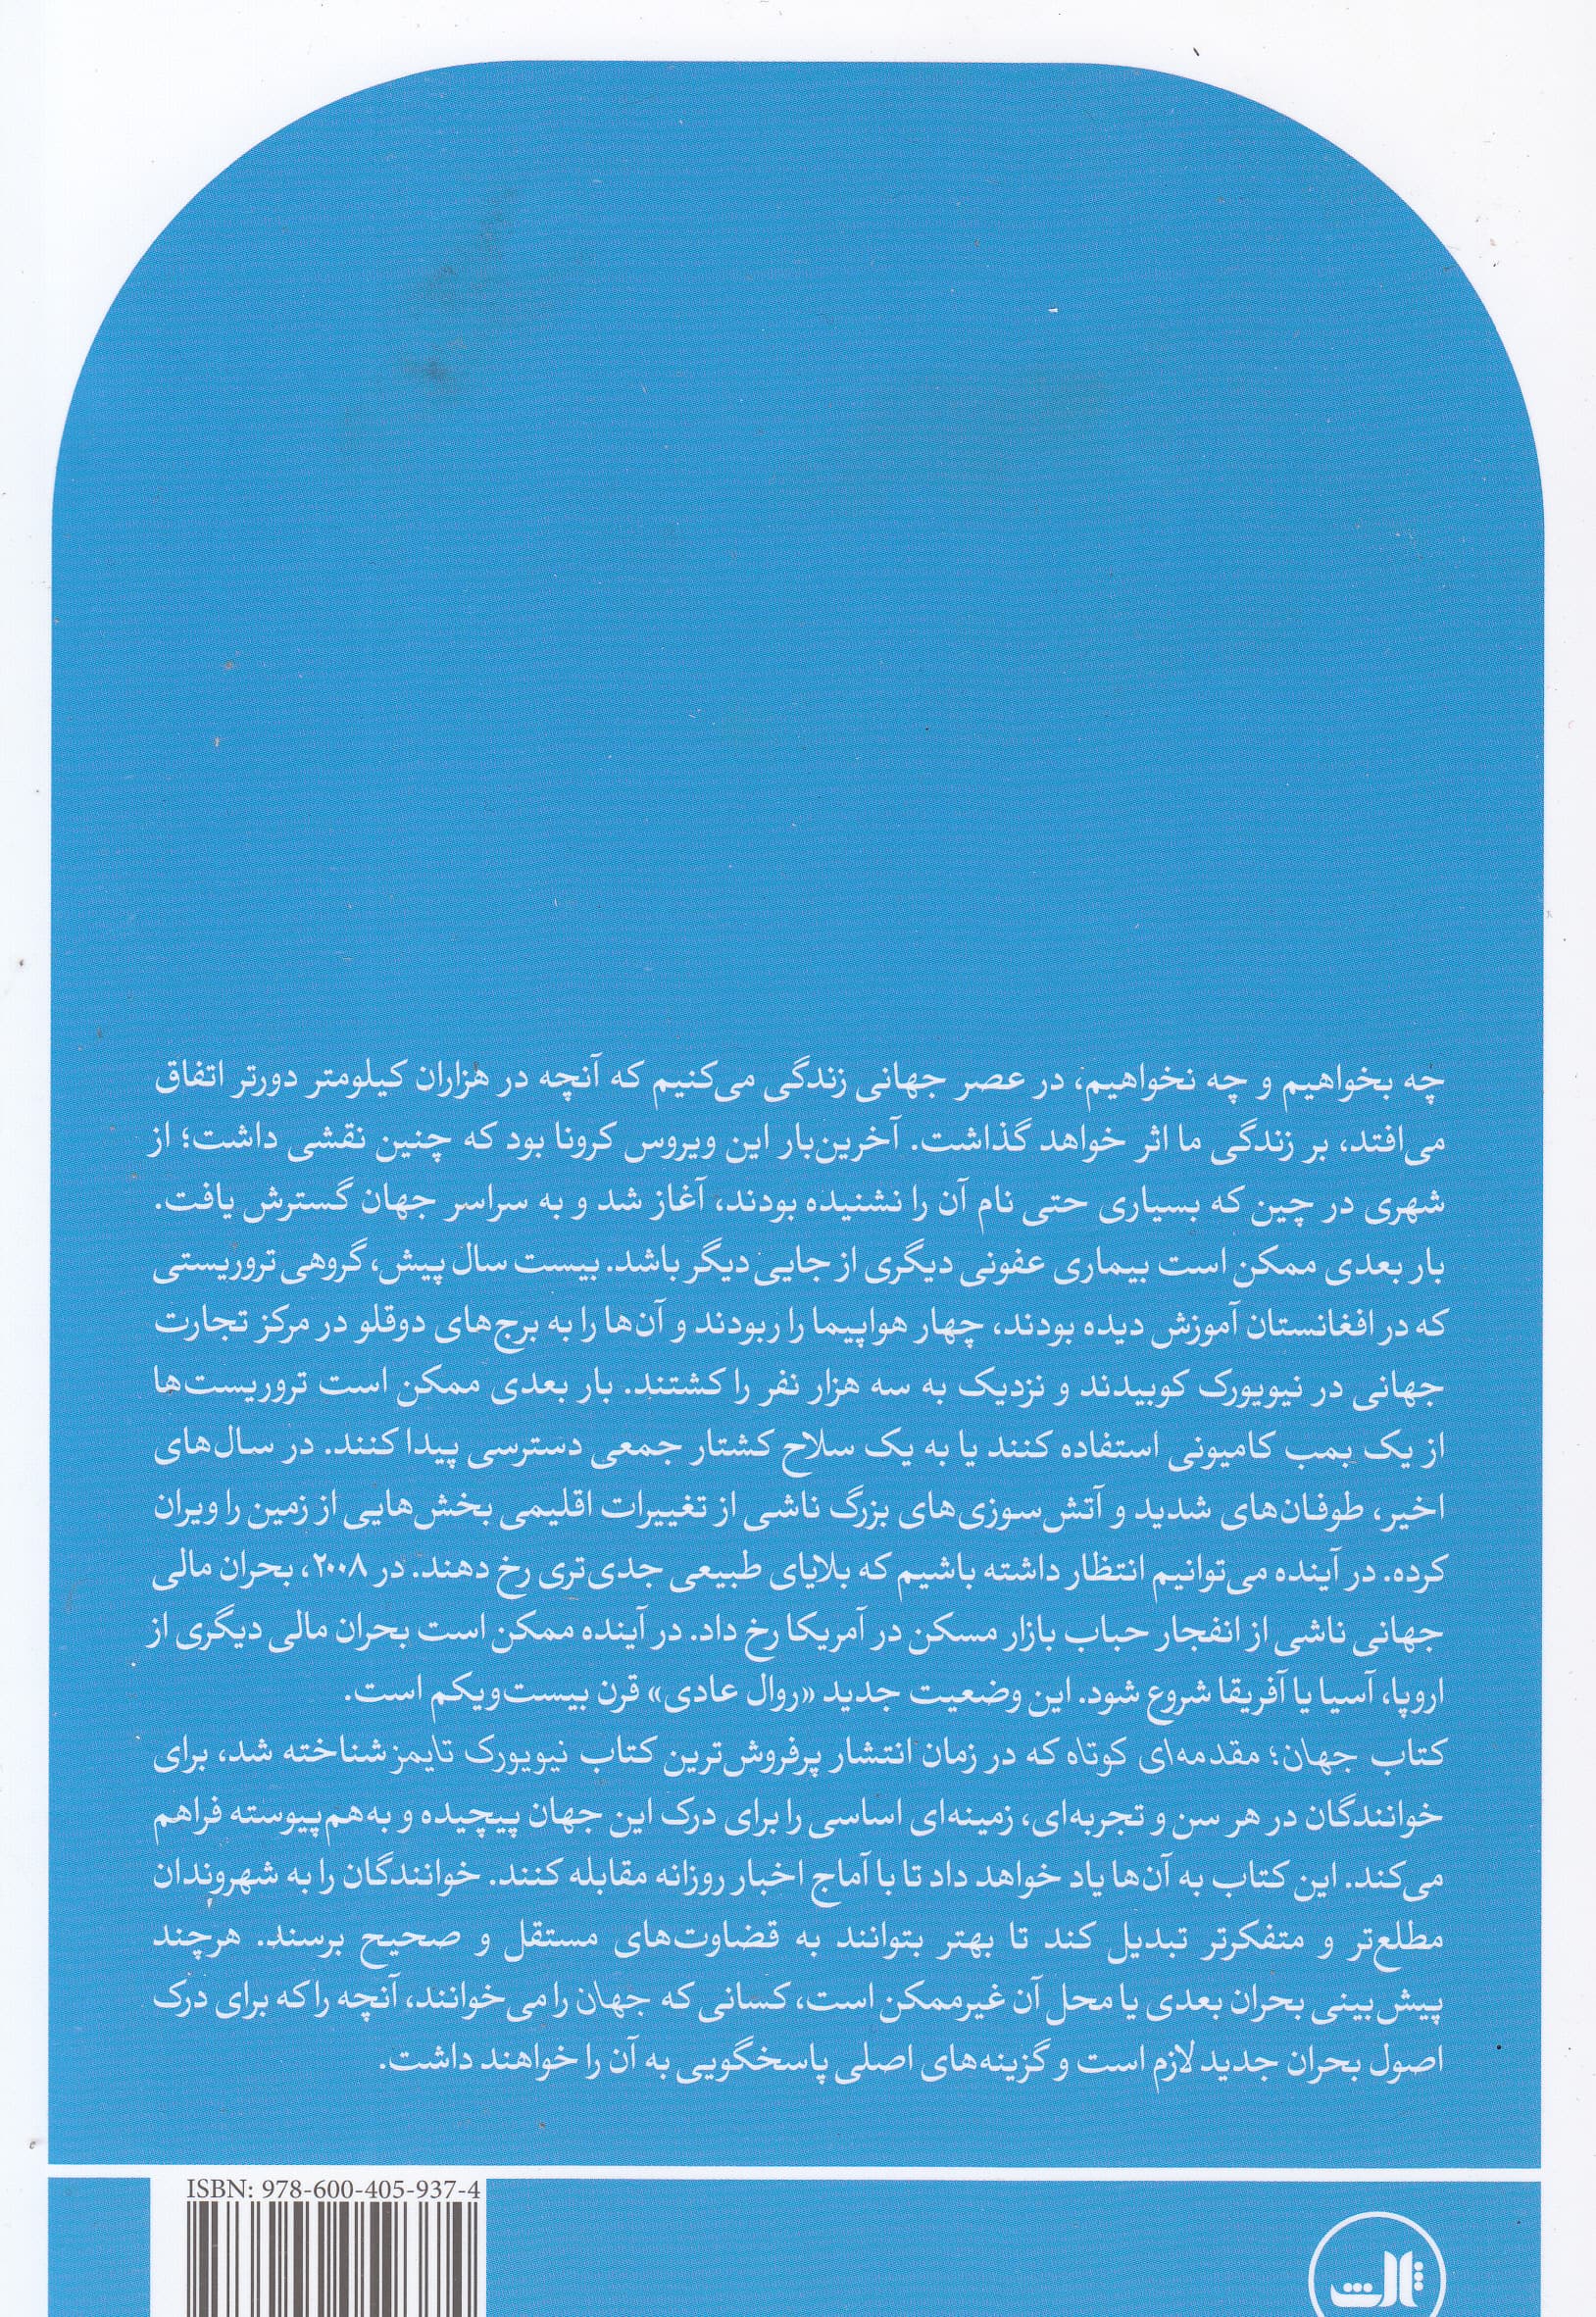 چه بخواهیم و چه نخواهیم، در عصر جهانی زندگی می‌کنیم که آنچه در هزاران کیلومتر دورتر اتفاق
می‌افتد، بر زندگی ما اثر خواهد گذاشت. آخرین‌بار این ویروس کرونا بود که چنین نقشی داشت؛ از
شهری در چین که بسیاری حتی نام آن را نشنیده بودند، آغاز شد و به سراسر جهان گسترش یافت.
بار بعدی ممکن است بیماری عفونی دیگری از جایی دیگر باشد. بیست سال پیش، گروهی تروریستی
که در افغانستان آموزش دیده بودند، چهار هواپیما را ربودند و آن‌ها را به برج‌های دوقلو در مرکز تجارت
جهانی در نیویورک کوبیدند و نزدیک به سه هزار نفر را کشتند. بار بعدی ممکن است تروریست‌ها
از یک بمب کامیونی استفاده کنند یا به یک سلاح کشتار جمعی دسترسی پیدا کنند. در سال‌های
اخیر، طوفان‌های شدید و آتش‌سوزی‌های بزرگ ناشی از تغییرات اقلیمی بخش‌هایی از زمین را ویران
کرده. در آینده می‌توانیم انتظار داشته باشیم که بلایای طبیعی جدی‌تری رخ دهند. در ۲۰۰۸، بحران مالی
جهانی ناشی از انفجار حباب بازار مسکن در آمریکا رخ داد. در آینده ممکن است بحران مالی دیگری از
اروپا، آسیا یا آفریقا شروع شود. این وضعیت جدید «روال عادی» قرن بیست‌ویکم است.
کتاب جهان؛ مقدمه‌ای کوتاه که در زمان انتشار پرفروش‌ترین کتاب نیویورک تایمز شناخته شد، برای
خوانندگان در هر سن و تجربه‌ای، زمینه‌ای اساسی را برای درک این جهان پیچیده و به‌هم‌پیوسته فراهم
می‌کند. این کتاب به آن‌ها یاد خواهد داد تا با آماج اخبار روزانه مقابله کنند. خوانندگان را به شهروندان
مطلع‌تر و متفکرتر تبدیل کند تا بهتر بتوانند به قضاوت‌های مستقل و صحیح برسند. هرچند
پیش‌بینی بحران بعدی یا محل آن غیرممکن است، کسانی که جهان را می‌خوانند، آنچه را که برای درک
اصول بحران جدید لازم است و گزینه‌های اصلی پاسخگویی به آن را خواهند داشت.
ISBN: 978-600-405-937-4
ثالث